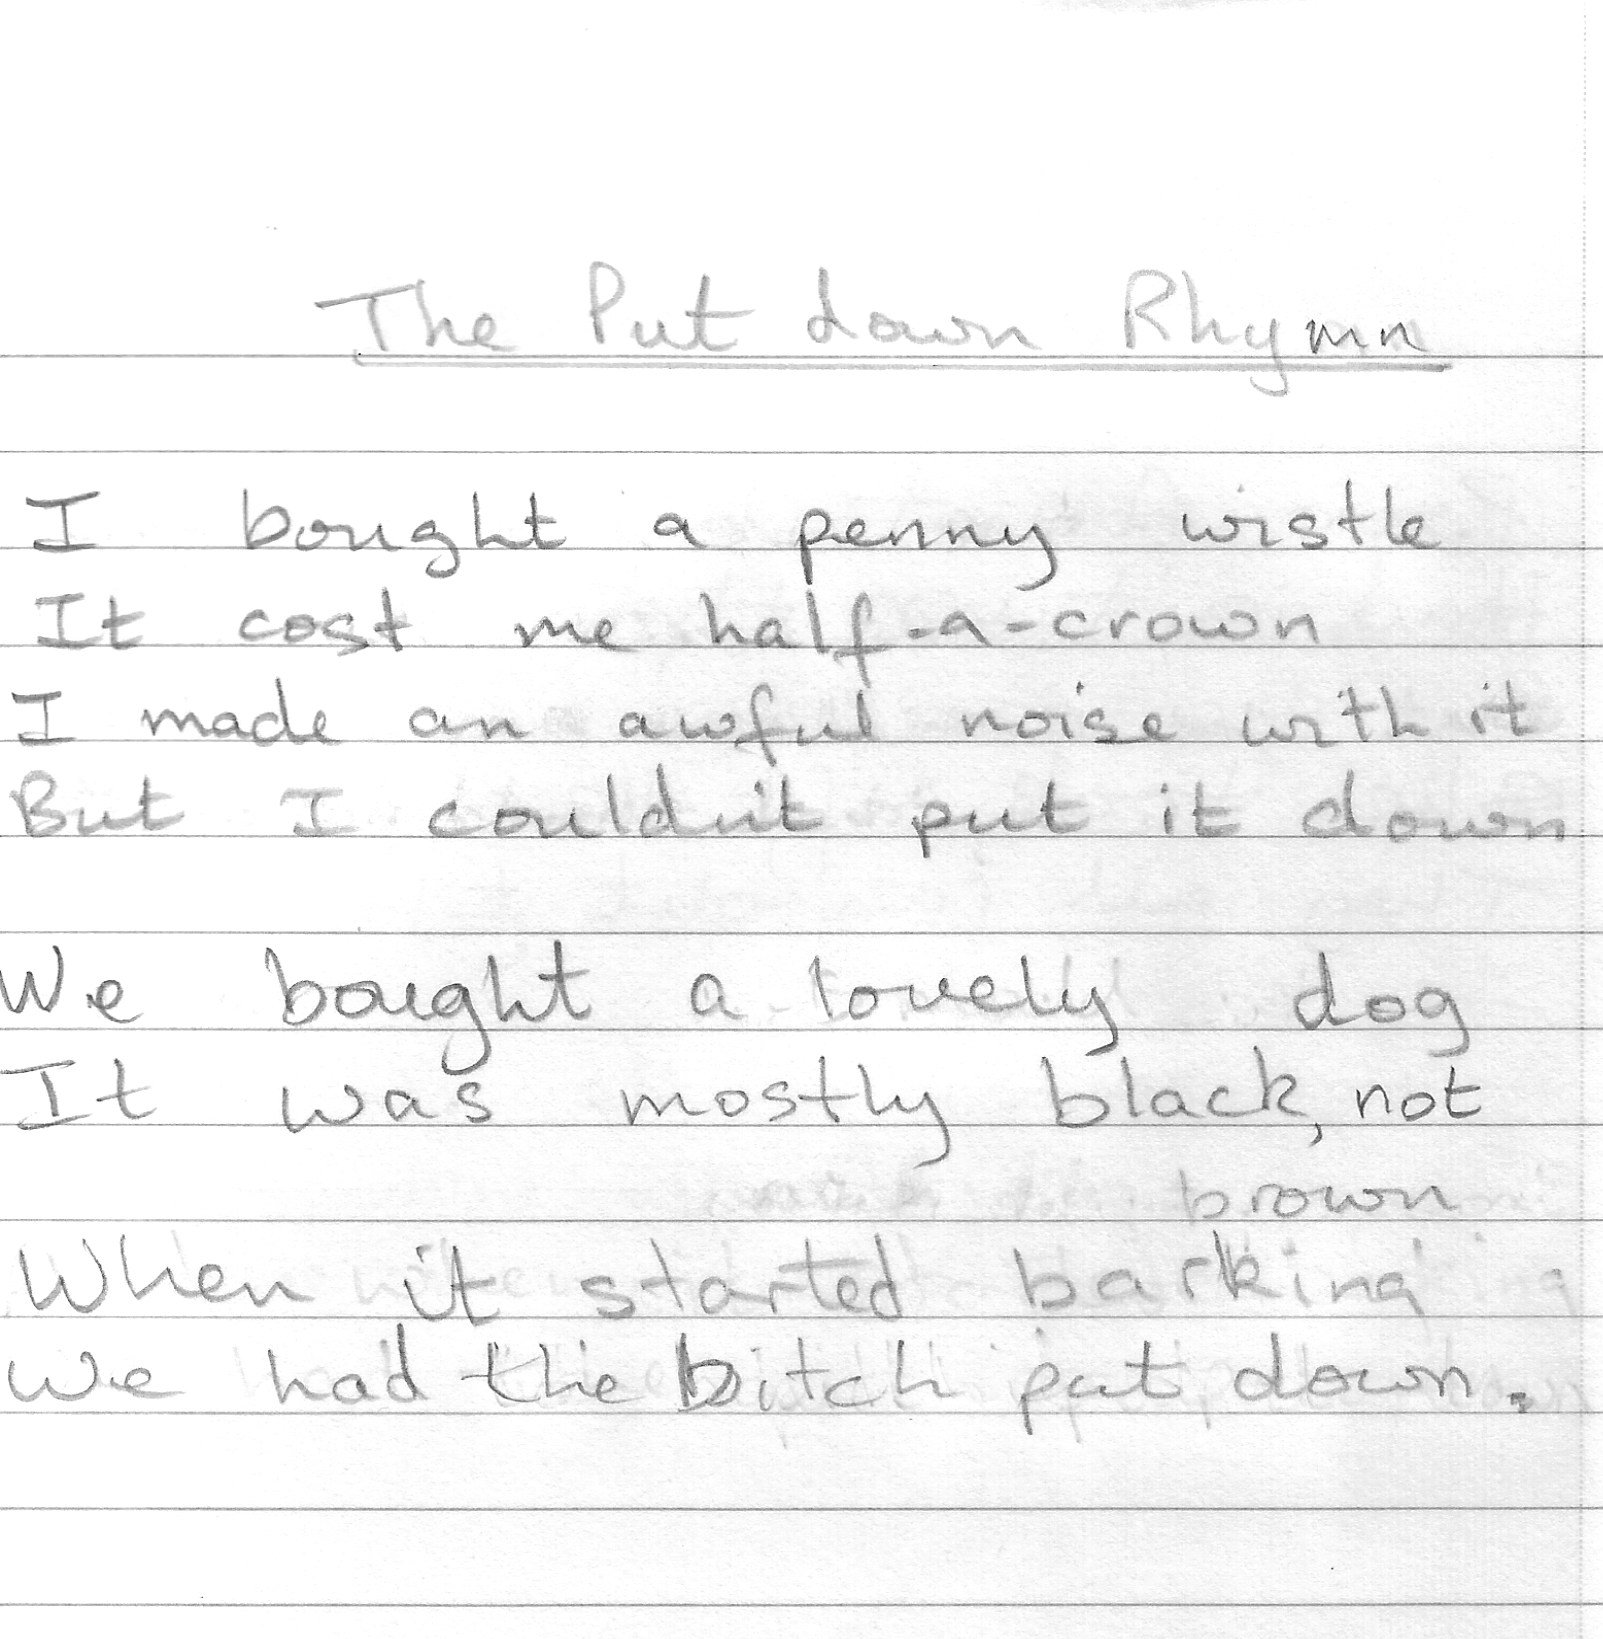 The Put down Rhymn
I bought a penny wistle
It cost me half-a-crown
I made an awful noise with it
But I couldn't put it down
We bought a lovely dog
It was mostly black, not
brown
When it started barking
We had the bitch put down.